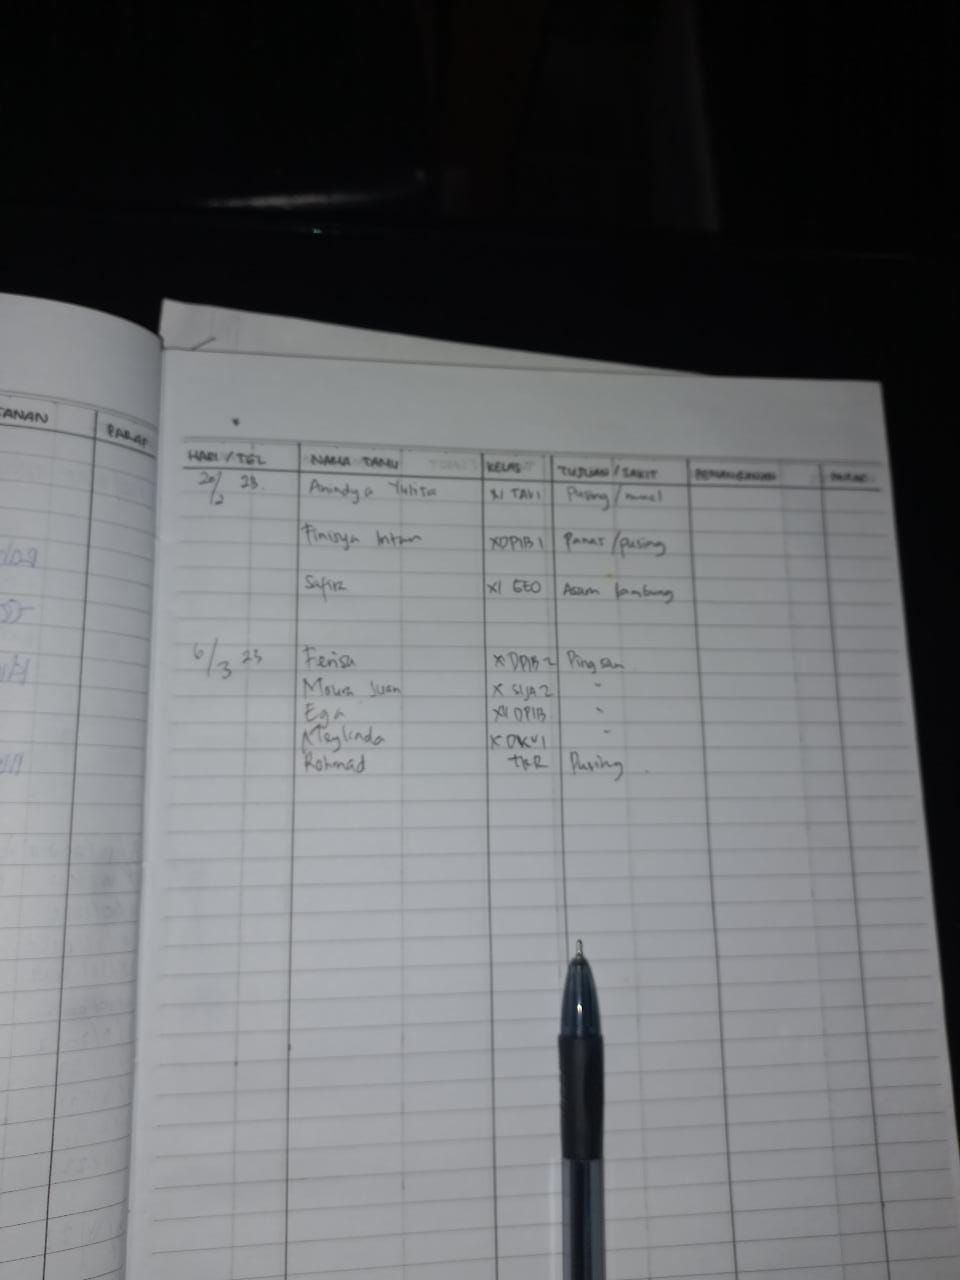 TANAN PARAF
HARI/TGL NAMA TAMU KELAS TUJUAN/SAKIT PENANGANAN PARAF
20/2 23. Anindya Yulita XI TAV1 Pusing/mual
Intan XDPIB1 Panas/pusing
Safira XI GEO Asam lambung
6/3 23 Ferisa X DPIB2 Pingsan
Moura Juan X SIJA2 "
Ega XII DPIB "
Meylinda X DKV1 "
Rohmad TKR Pusing